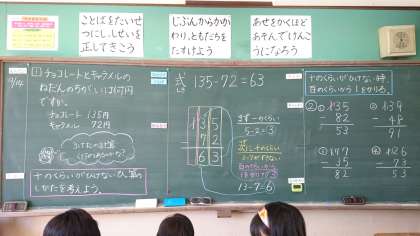 ことばをたいせ
つにし、しせいを
正してきこう
じぶんからかか
わり、ともだちを
たすけよう
あせをかくほど
あそんでけんこ
うになろう
9/14
1 チョコレートとキャラメルの
ねだんのちがいは何円
ですか。
チョコレート 135円
キャラメル 72円
十のくらいがひけないひっ算の
しかたを考えよう。
式 135-72=63
135
72
63
まず一のくらい
5-2=3
つぎに十のくらい
13-7=6
十のくらいがひけない時、
百のくらいから1をかりる。
②
① 135
- 82
53
② 139
- 48
91
③ 147
- 35
④ 126
- 73
53